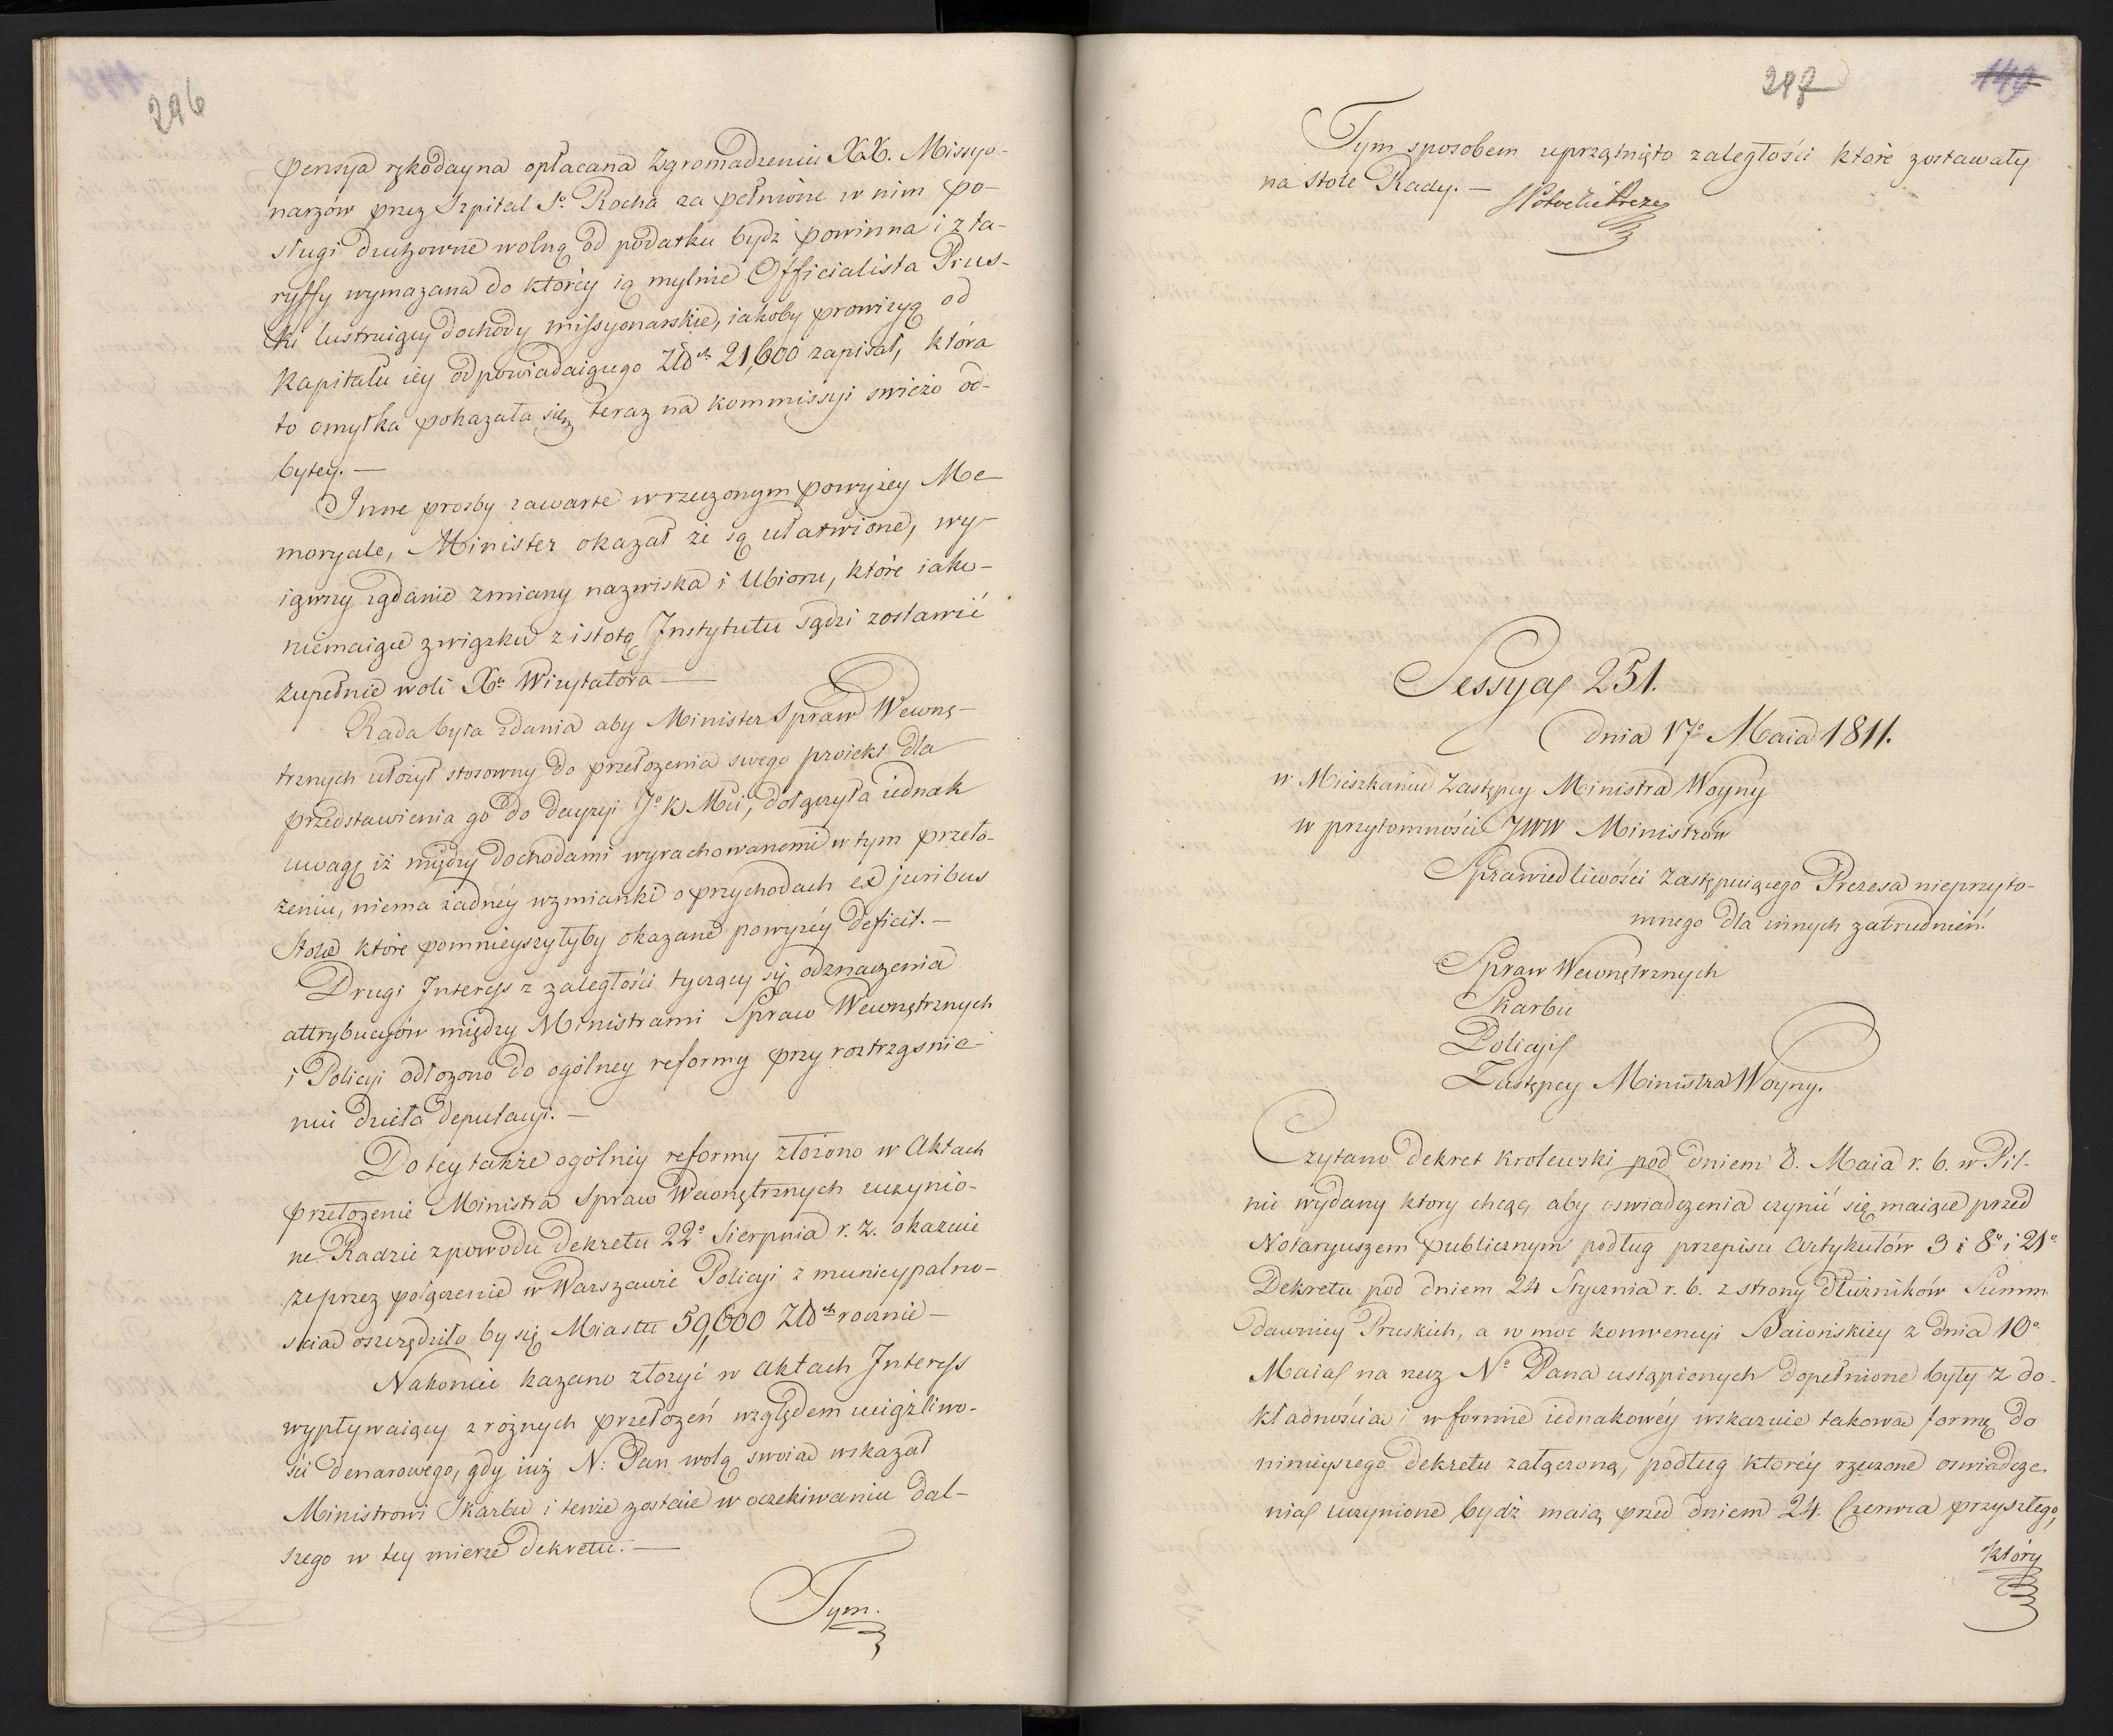 296
pensya rękodayna opłacana Zgromadzeniu XX. Missyo-
narzów przez Szpital Sº Rocha za pełnione w nim po-
sługi duchowne wolną od podatku bydź powinna i z ta-
ryffy wymazana do którey ią mylnie Officialista Prus-
ki lustruiący dochody missyonarskie, iakoby prowizyą od
Kapitału iey odpowiadaiącego Złotch 21,600 zapisał, która
to omyłka pokazała się teraz na kommissyi swieżo od-
bytey. —
Inne prozby zawarte w rzeczonym powyżey Me-
moryale, Minister okazał że są ułatwione, wy-
iąwszy żądanie zmiany nazwiska i Ubioru, które iako-
niemaiące związku z istotą Instytutu sądzi zostawić
zupełnie woli Xa Wizytatora —
Rada była zdania aby Minister Spraw Wewnę-
trznych ułożył stosowny do przełożenia swego proiekt dla
przedstawienia go do decyzyi Jº K Mci, dołączyła iednak
uwagę iż między dochodami wyrachowanemi w tym przeło-
żeniu, niema żadney wzmianki o przychodach ex juribus
Stolæ które pomnieyszyłyby okazane powyżey deficit. —
Drugi Interess z zaległości tyczący się odznaczenia
attrybucyów między Ministrami Spraw Wewnętrznych
i Policyi odłożono do ogólney reformy przy roztrząsnie-
niu dzieła deputacyi. —
Do tey także ogólney reformy złożono w Aktach
przełożenie Ministra Spraw Wewnętrznych uczynio-
ne Radzie z powodu dekretu 22º Sierpnia r. z. okazuie
że przez połączenie w Warszawie Policyi z municypalno-
scią oszczędziło by się Miastu 59,600 Złotch rocznie —
Nakoniec kazano złożyć w Aktach Interess
wypływaiący z różnych przełożeń względem uciążliwo-
ści denarowego, gdy iuż N: Pan wolą swoią wskazał
Ministrowi Skarbu i tenże zostaie w oczekiwaniu dal-
szego w tey mierze dekretu. —
Tym.
297
149
Tym sposobem uprzątnięto zaległości które zostawały
na stole Rady. —
Sessya 251.
dnia 17º Maia 1811.
w Mieszkaniu Zastępcy Ministra Woyny
w przytomności JWW Ministrów
Sprawiedliwości Zastępuiącego Prezesa nieprzyto-
mnego dla innych zatrudnień.
Spraw Wewnętrznych
Skarbu
Policyi
Zastępcy Ministra Woyny.
Czytano dekret krolewski pod dniem 8. Maia r. b. w Pil-
nic wydany ktory chcąc aby oswiadczenia czynić się maiące przed
Notaryuszem publicznym podług przepisu Artykułów 3 i 8º i 21º
Dekretu pod dniem 24 Stycznia r. b. z strony dłużników Summ
dawniey Pruskich, a w moc konwencyi Baiońskiey z dnia 10º
Maia na rzecz Nº Pana ustąpionych dopełnione były z do-
kładnościa i w formie iednakowéy wskazuie takowa formę do
ninieyszego dekretu załączoną, podług którey rzeczone oswiadcze-
nia uczynione bydź maią przed dniem 24. Czerwca przyszłego,
który